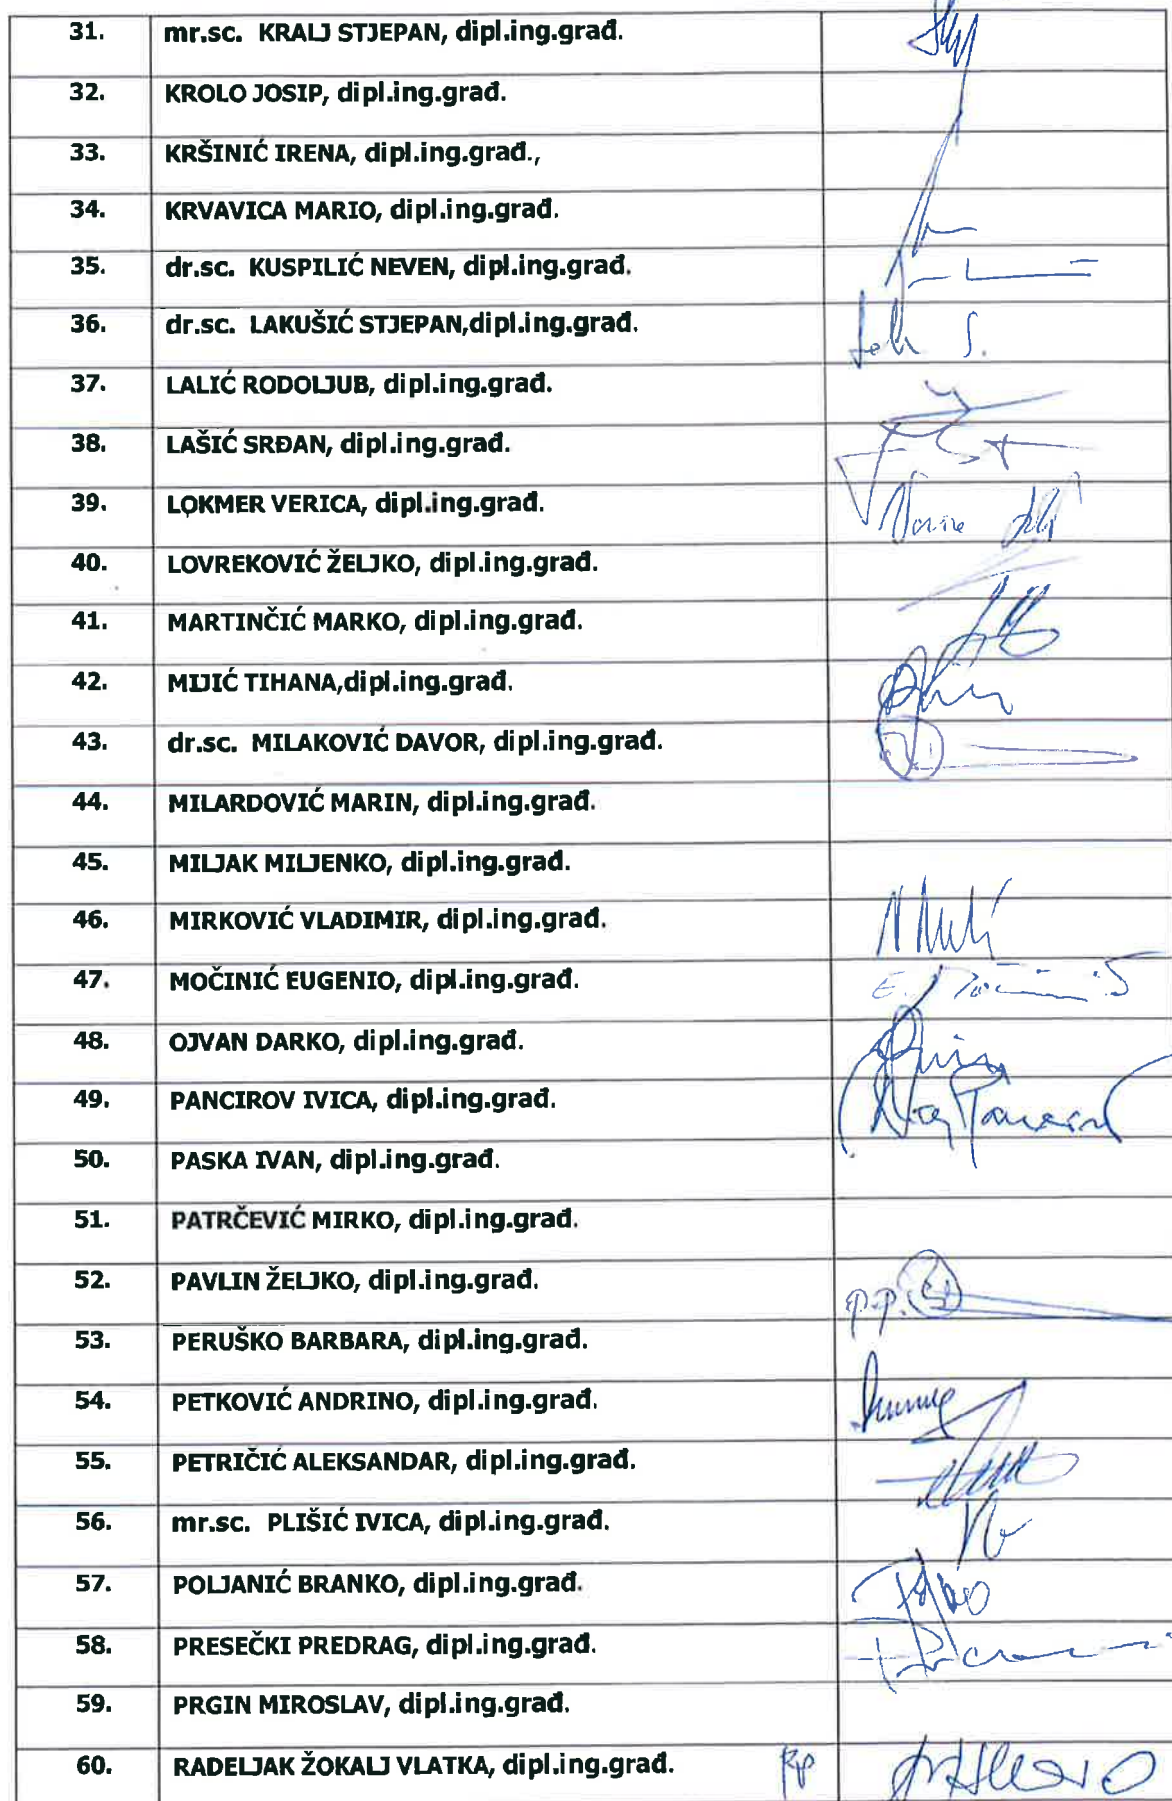 31. mr.sc. KRALJ STJEPAN, dipl.ing.građ.
32. KROLO JOSIP, dipl.ing.građ.
33. KRŠINIĆ IRENA, dipl.ing.građ.,
34. KRVAVICA MARIO, dipl.ing.građ.
35. dr.sc. KUSPILIĆ NEVEN, dipl.ing.građ.
36. dr.sc. LAKUŠIĆ STJEPAN,dipl.ing.građ.
37. LALIĆ RODOLJUB, dipl.ing.građ.
38. LAŠIĆ SRĐAN, dipl.ing.građ.
39. LOKMER VERICA, dipl.ing.građ.
40. LOVREKOVIĆ ŽELJKO, dipl.ing.građ.
41. MARTINČIĆ MARKO, dipl.ing.građ.
42. MIJIĆ TIHANA,dipl.ing.građ.
43. dr.sc. MILAKOVIĆ DAVOR, dipl.ing.građ.
44. MILARDOVIĆ MARIN, dipl.ing.građ.
45. MILJAK MILJENKO, dipl.ing.građ.
46. MIRKOVIĆ VLADIMIR, dipl.ing.građ.
47. MOČINIĆ EUGENIO, dipl.ing.građ.
48. OJVAN DARKO, dipl.ing.građ.
49. PANCIROV IVICA, dipl.ing.građ.
50. PASKA IVAN, dipl.ing.građ.
51. PATRČEVIĆ MIRKO, dipl.ing.građ.
52. PAVLIN ŽELJKO, dipl.ing.građ. p.p.
53. PERUŠKO BARBARA, dipl.ing.građ.
54. PETKOVIĆ ANDRINO, dipl.ing.građ.
55. PETRIČIĆ ALEKSANDAR, dipl.ing.građ.
56. mr.sc. PLIŠIĆ IVICA, dipl.ing.građ.
57. POLJANIĆ BRANKO, dipl.ing.građ.
58. PRESEČKI PREDRAG, dipl.ing.građ.
59. PRGIN MIROSLAV, dipl.ing.građ.
60. RADELJAK ŽOKALJ VLATKA, dipl.ing.građ.